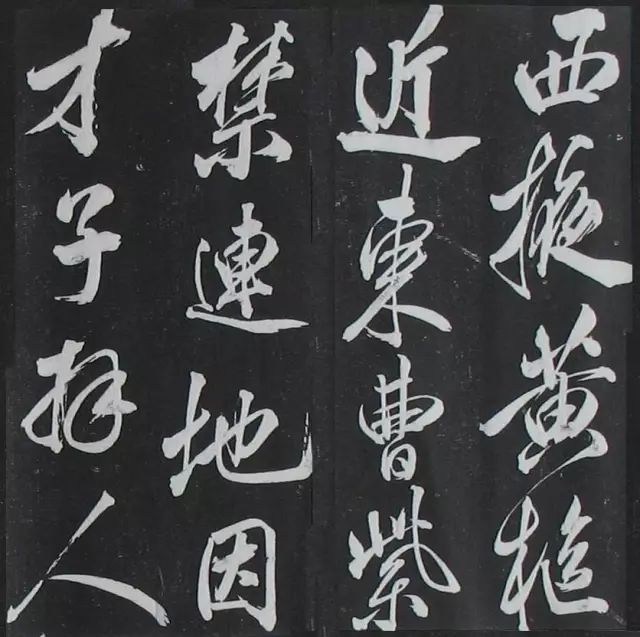 西掖黃樞
近東曹紫
禁連地因
才子拜人